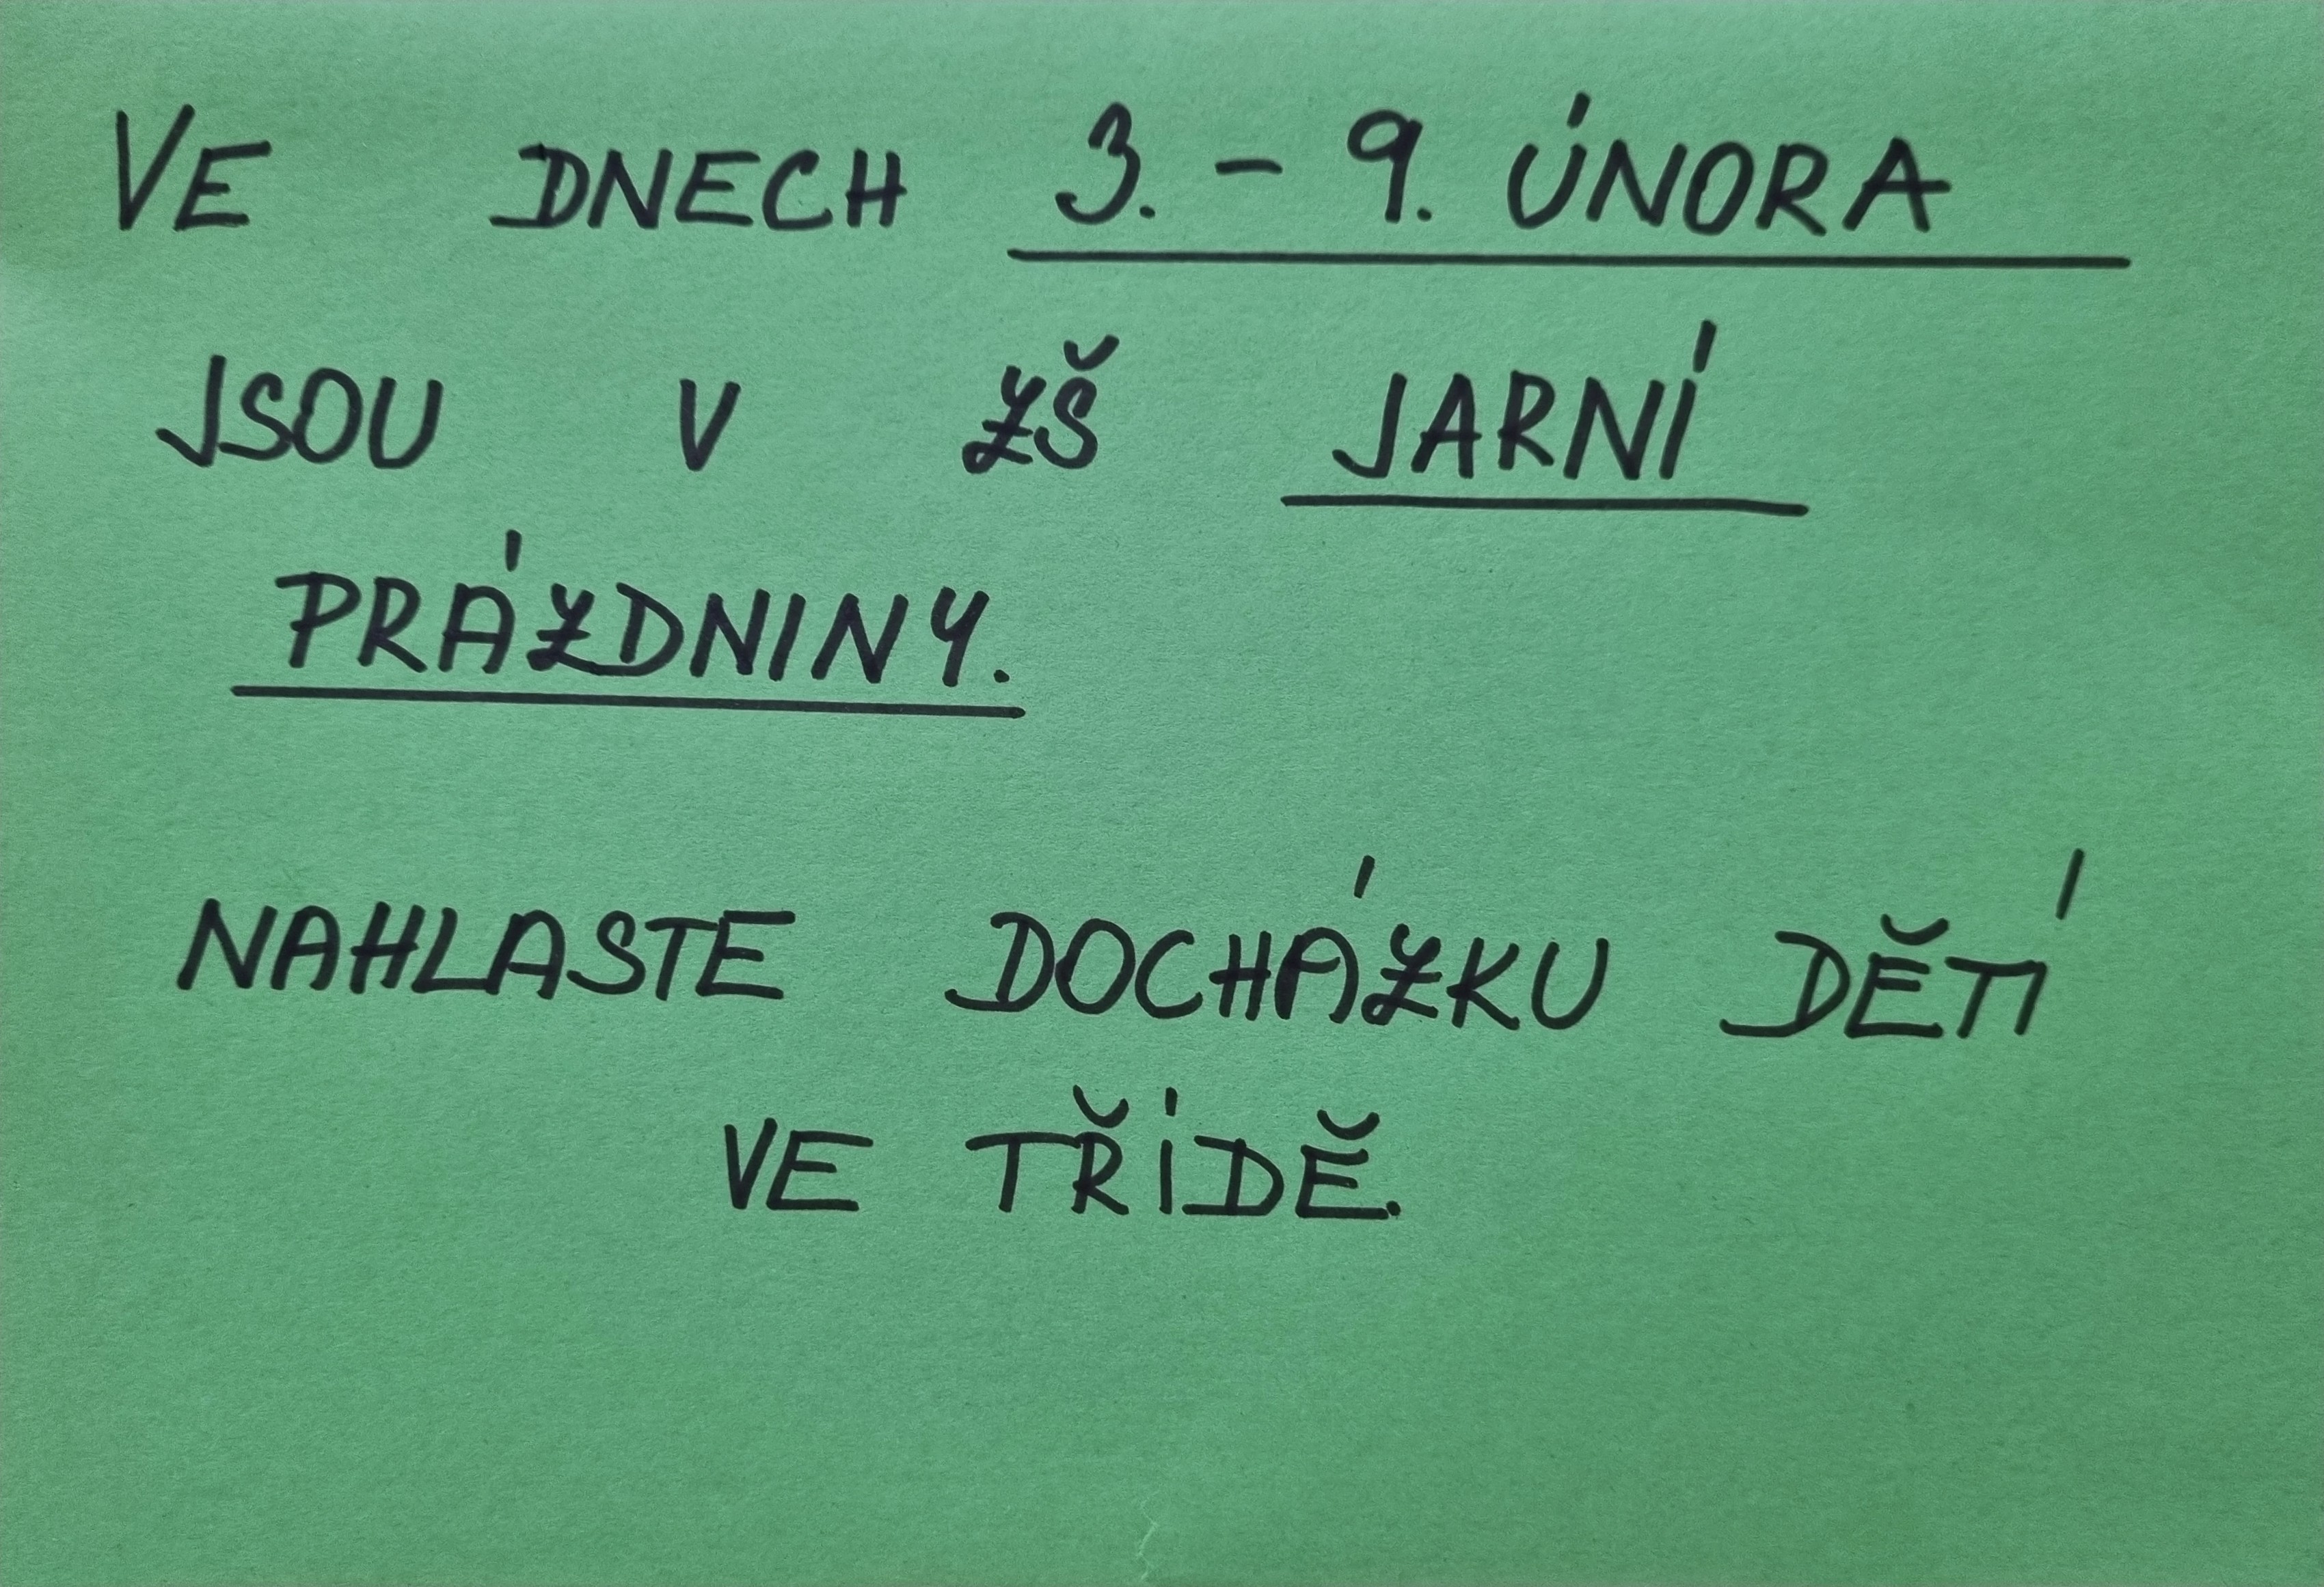 VE DNECH 3. - 9. ÚNORA
JSOU V ZŠ JARNÍ
PRÁZDNINY.
NAHLASTE DOCHÁZKU DĚTÍ
VE TŘÍDĚ.